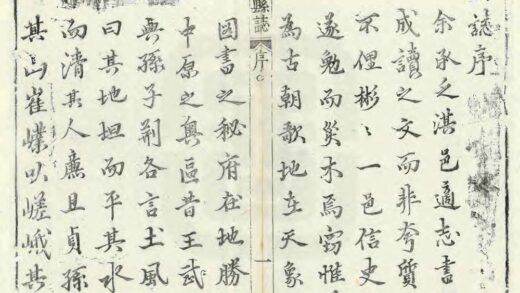 誌序
余承乏淇邑適志書
成讀之文而非夸質
不俚彬〻一邑信史
遂勉而災木焉竊惟
為古朝歌地在天象
縣誌 序 一
圖書之秘府在地勝
中原之奧區昔王武
與孫子荊各言土風
曰其地坦而平其水
而清其人廉且貞孫
其山崔以嵯峨其